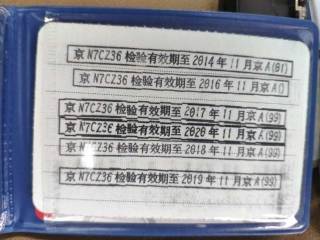 京 N7CZ36 检验有效期至 2014 年 11 月京 A(01)
京 N7CZ36 检验有效期至 2016 年 11 月京 A()
京 N7CZ36 检验有效期至 2017 年 11 月京 A(99)
京 N7CZ36 检验有效期至 2020 年 11 月京 A(99)
京 N7CZ36 检验有效期至 2018 年 11 月京 A(99)
京 N7CZ36 检验有效期至 2019 年 11 月京 A(99)